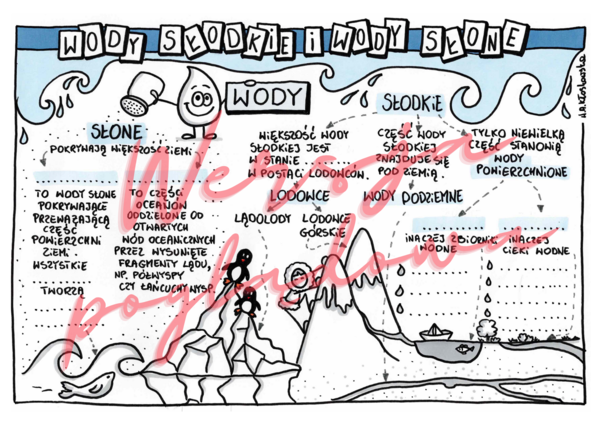 WODY SŁODKIE I WODY SŁONE
WODY
SŁODKIE
SŁONE
POKRYWAJĄ WIĘKSZOŚĆ ZIEMI
TO WODY SŁONE
POKRYWAJĄCE
PRZEWAŻAJĄCĄ
CZĘŚĆ
POWIERZCHNI
ZIEMI.
WSZYSTKIE
TWORZĄ
TO CZĘŚCI
OCEANÓW
ODDZIELONE OD
OTWARTYCH
WÓD OCEANICZNYCH
PRZEZ WYSUNIĘTE
FRAGMENTY LĄDU,
NP. PÓŁWYSPY
CZY ŁAŃCUCHY WYSP.
WIĘKSZOŚĆ WODY
SŁODKIEJ JEST
W STANIE
W POSTACI LODOWCÓW.
LODOWCE
LĄDOLODY
LODOWCE
GÓRSKIE
CZĘŚĆ WODY
SŁODKIEJ
ZNAJDUJE SIĘ
POD ZIEMIĄ.
WODY PODZIEMNE
TYLKO NIEWIELKĄ
CZĘŚĆ STANOWIĄ
WODY
POWIERZCHNIOWE
INACZEJ ZBIORNIKI
WODNE
INACZEJ
CIEKI WODNE
Wersja
poglądowa